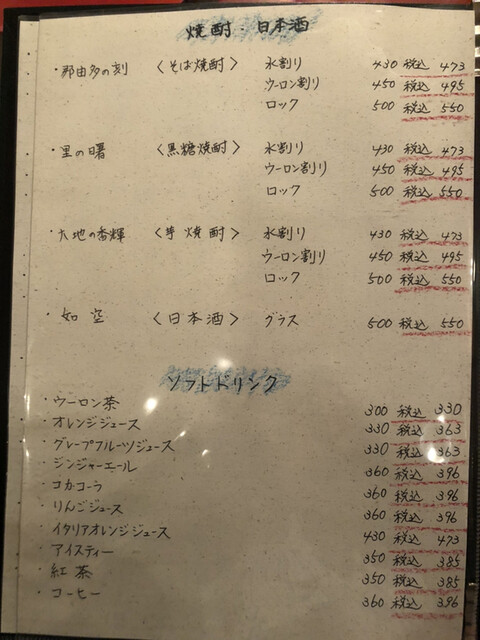 焼酎・日本酒
・那由多の刻 〈そば焼酎〉 水割り 430 税込 473
ウーロン割り 450 税込 495
ロック 500 税込 550
・里の曙 〈黒糖焼酎〉 水割り 430 税込 473
ウーロン割り 450 税込 495
ロック 500 税込 550
・大地の香輝 〈芋焼酎〉 水割り 430 税込 473
ウーロン割り 450 税込 495
ロック 500 税込 550
・如空 〈日本酒〉 グラス 500 税込 550
ソフトドリンク
・ウーロン茶 300 税込 330
・オレンジジュース 330 税込 363
・グレープフルーツジュース 330 税込 363
・ジンジャーエール 360 税込 396
・コカコーラ 360 税込 396
・りんごジュース 360 税込 396
・イタリアオレンジジュース 430 税込 473
・アイスティー 350 税込 385
・紅茶 350 税込 385
・コーヒー 360 税込 396